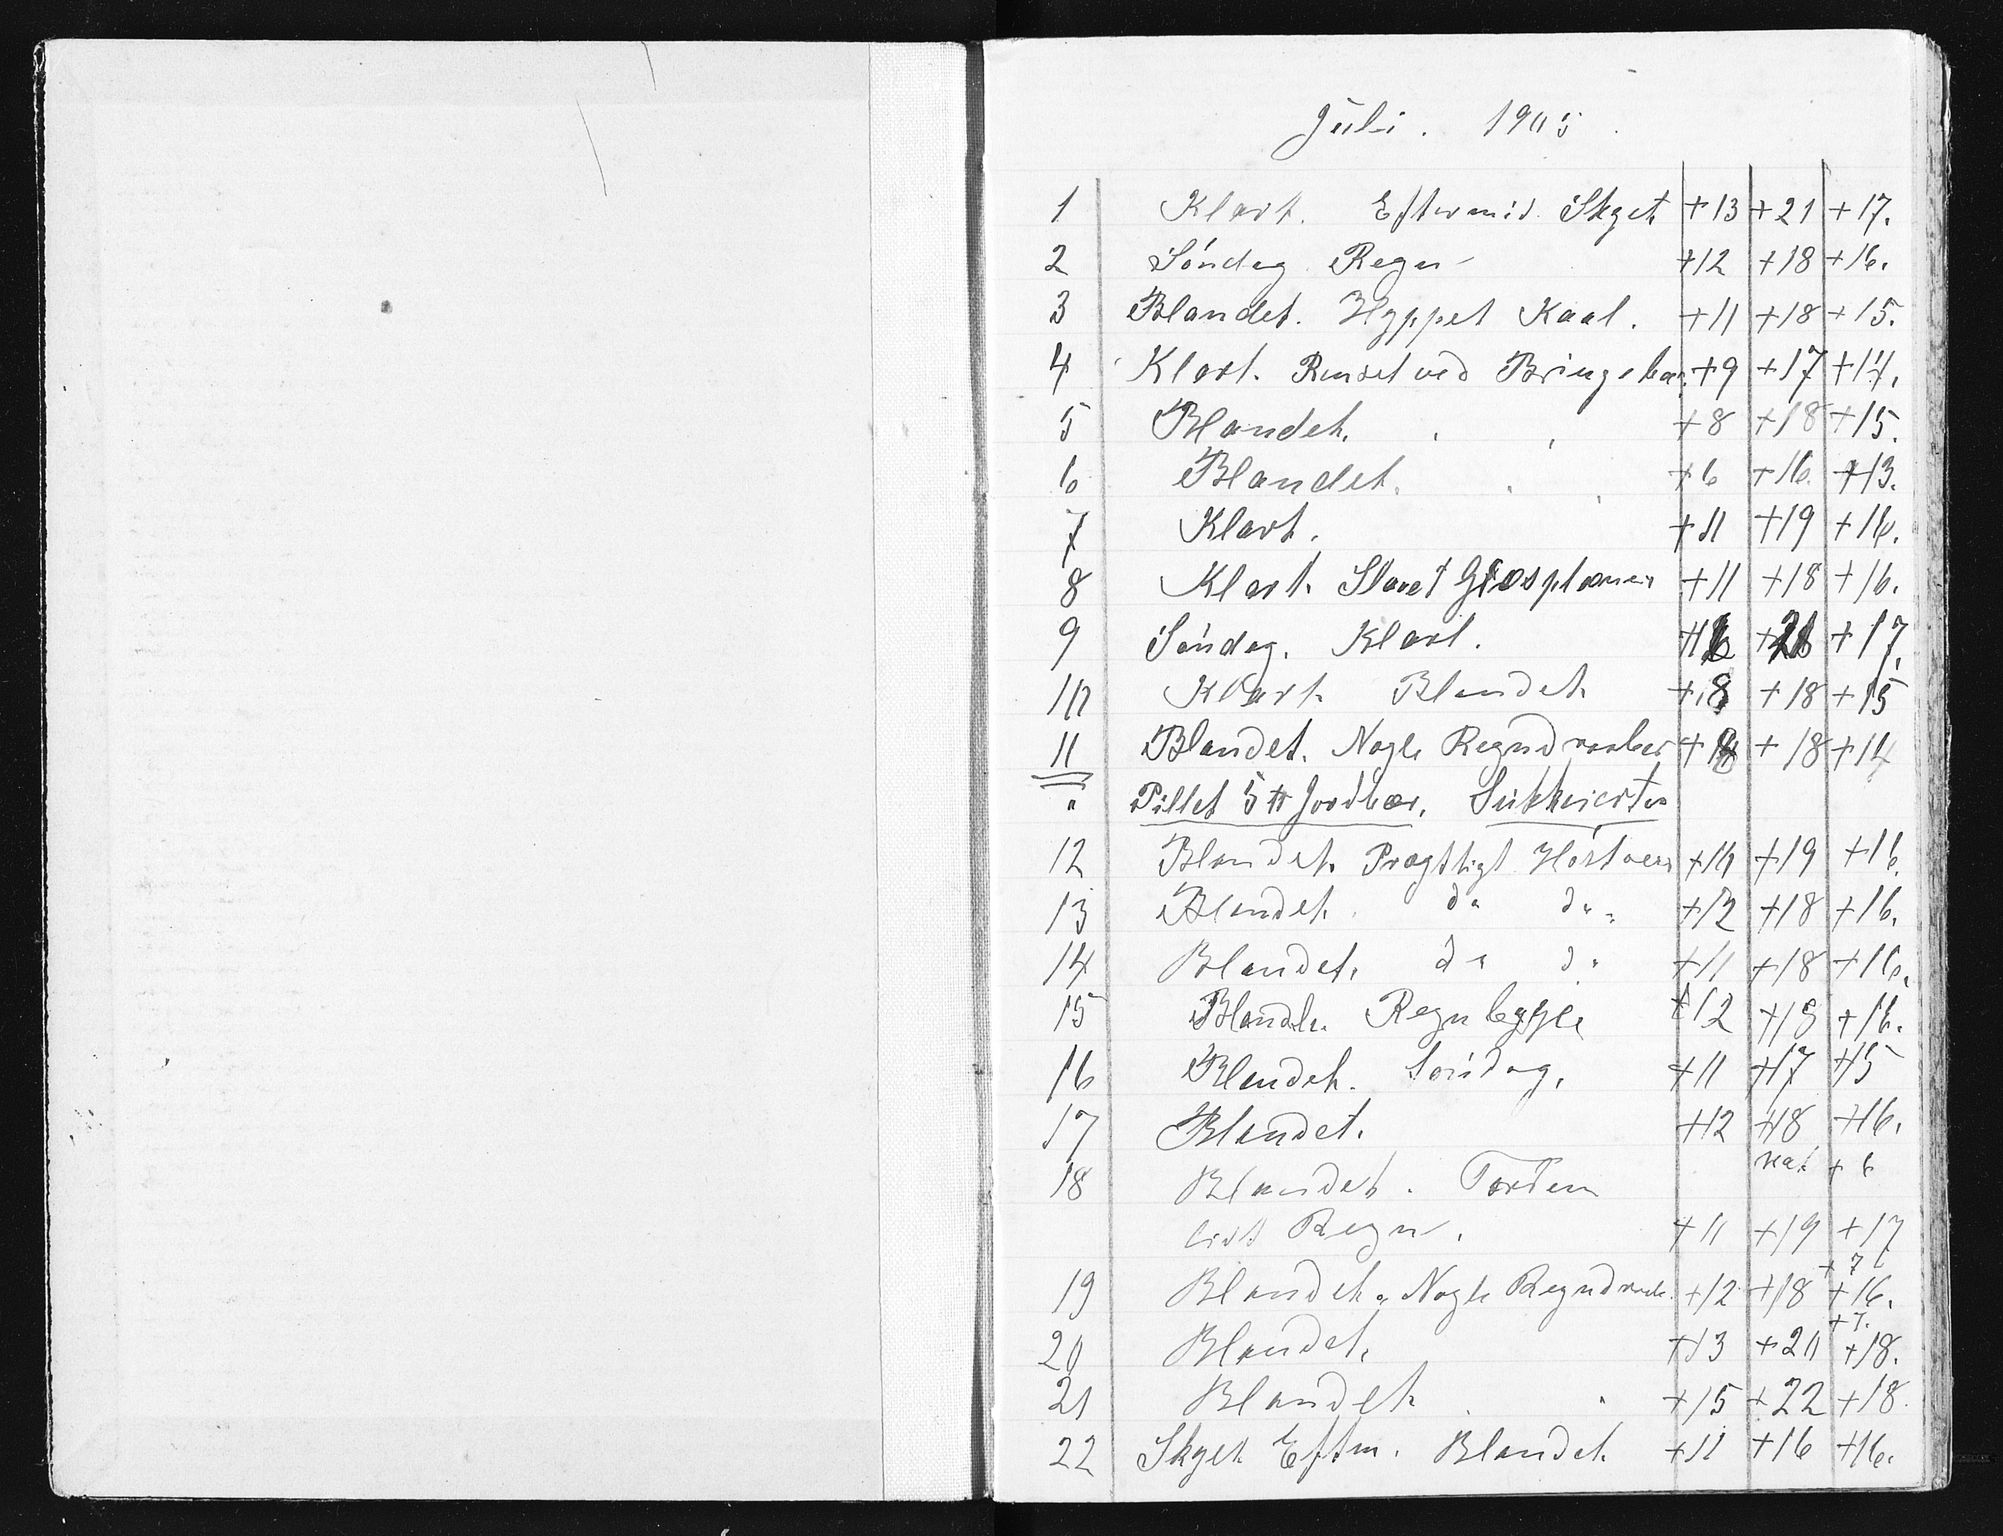 Juli. 1905.
1 Klart. Eftermid. Skyet +13 +21 +17.
2 Søndag. Regn +12 +18 +16.
3 Blandet. Hyppet Kaal. +11 +18 +15.
4 Klart. Renset ved +9 +17 +14.
5 Blandet. +8 +18 +15.
6 Blandet. +6 +16. +13.
7 Klart. +11 +19 +16.
8 Klart. Slaaet Græsplænen +11 +18 +16.
9 Søndag. Klart. +17.
10 Klart. Blandet +8 +18 +15
11 Blandet. Nogle Regndraaber +18 +14
" Pillet 5 ℔ Jordbær. Sukkerierter
12 Blandet. Pragtfigt Høstveir +19 +16.
13 Blandet. do do " +12 +18 +16.
14 Blandet. do do +11 +18 +16.
15 Blandt. Regnbygge +12 +18 +16.
16 Blandet. Søndag. +11 +17 +15
17 Blandet. +12 +18 +16.
nat +6
18 Blandet. Torden
lidt Regn. +11 +19 +17
+7
19 Blandet. Nogle Regndraab. +12 +18 +16.
+7.
20 Blandet. +13 +20 +18.
21 Blandet +15 +22 +18.
22 Skyet Eftm. Blandet. +11 +16 +16.